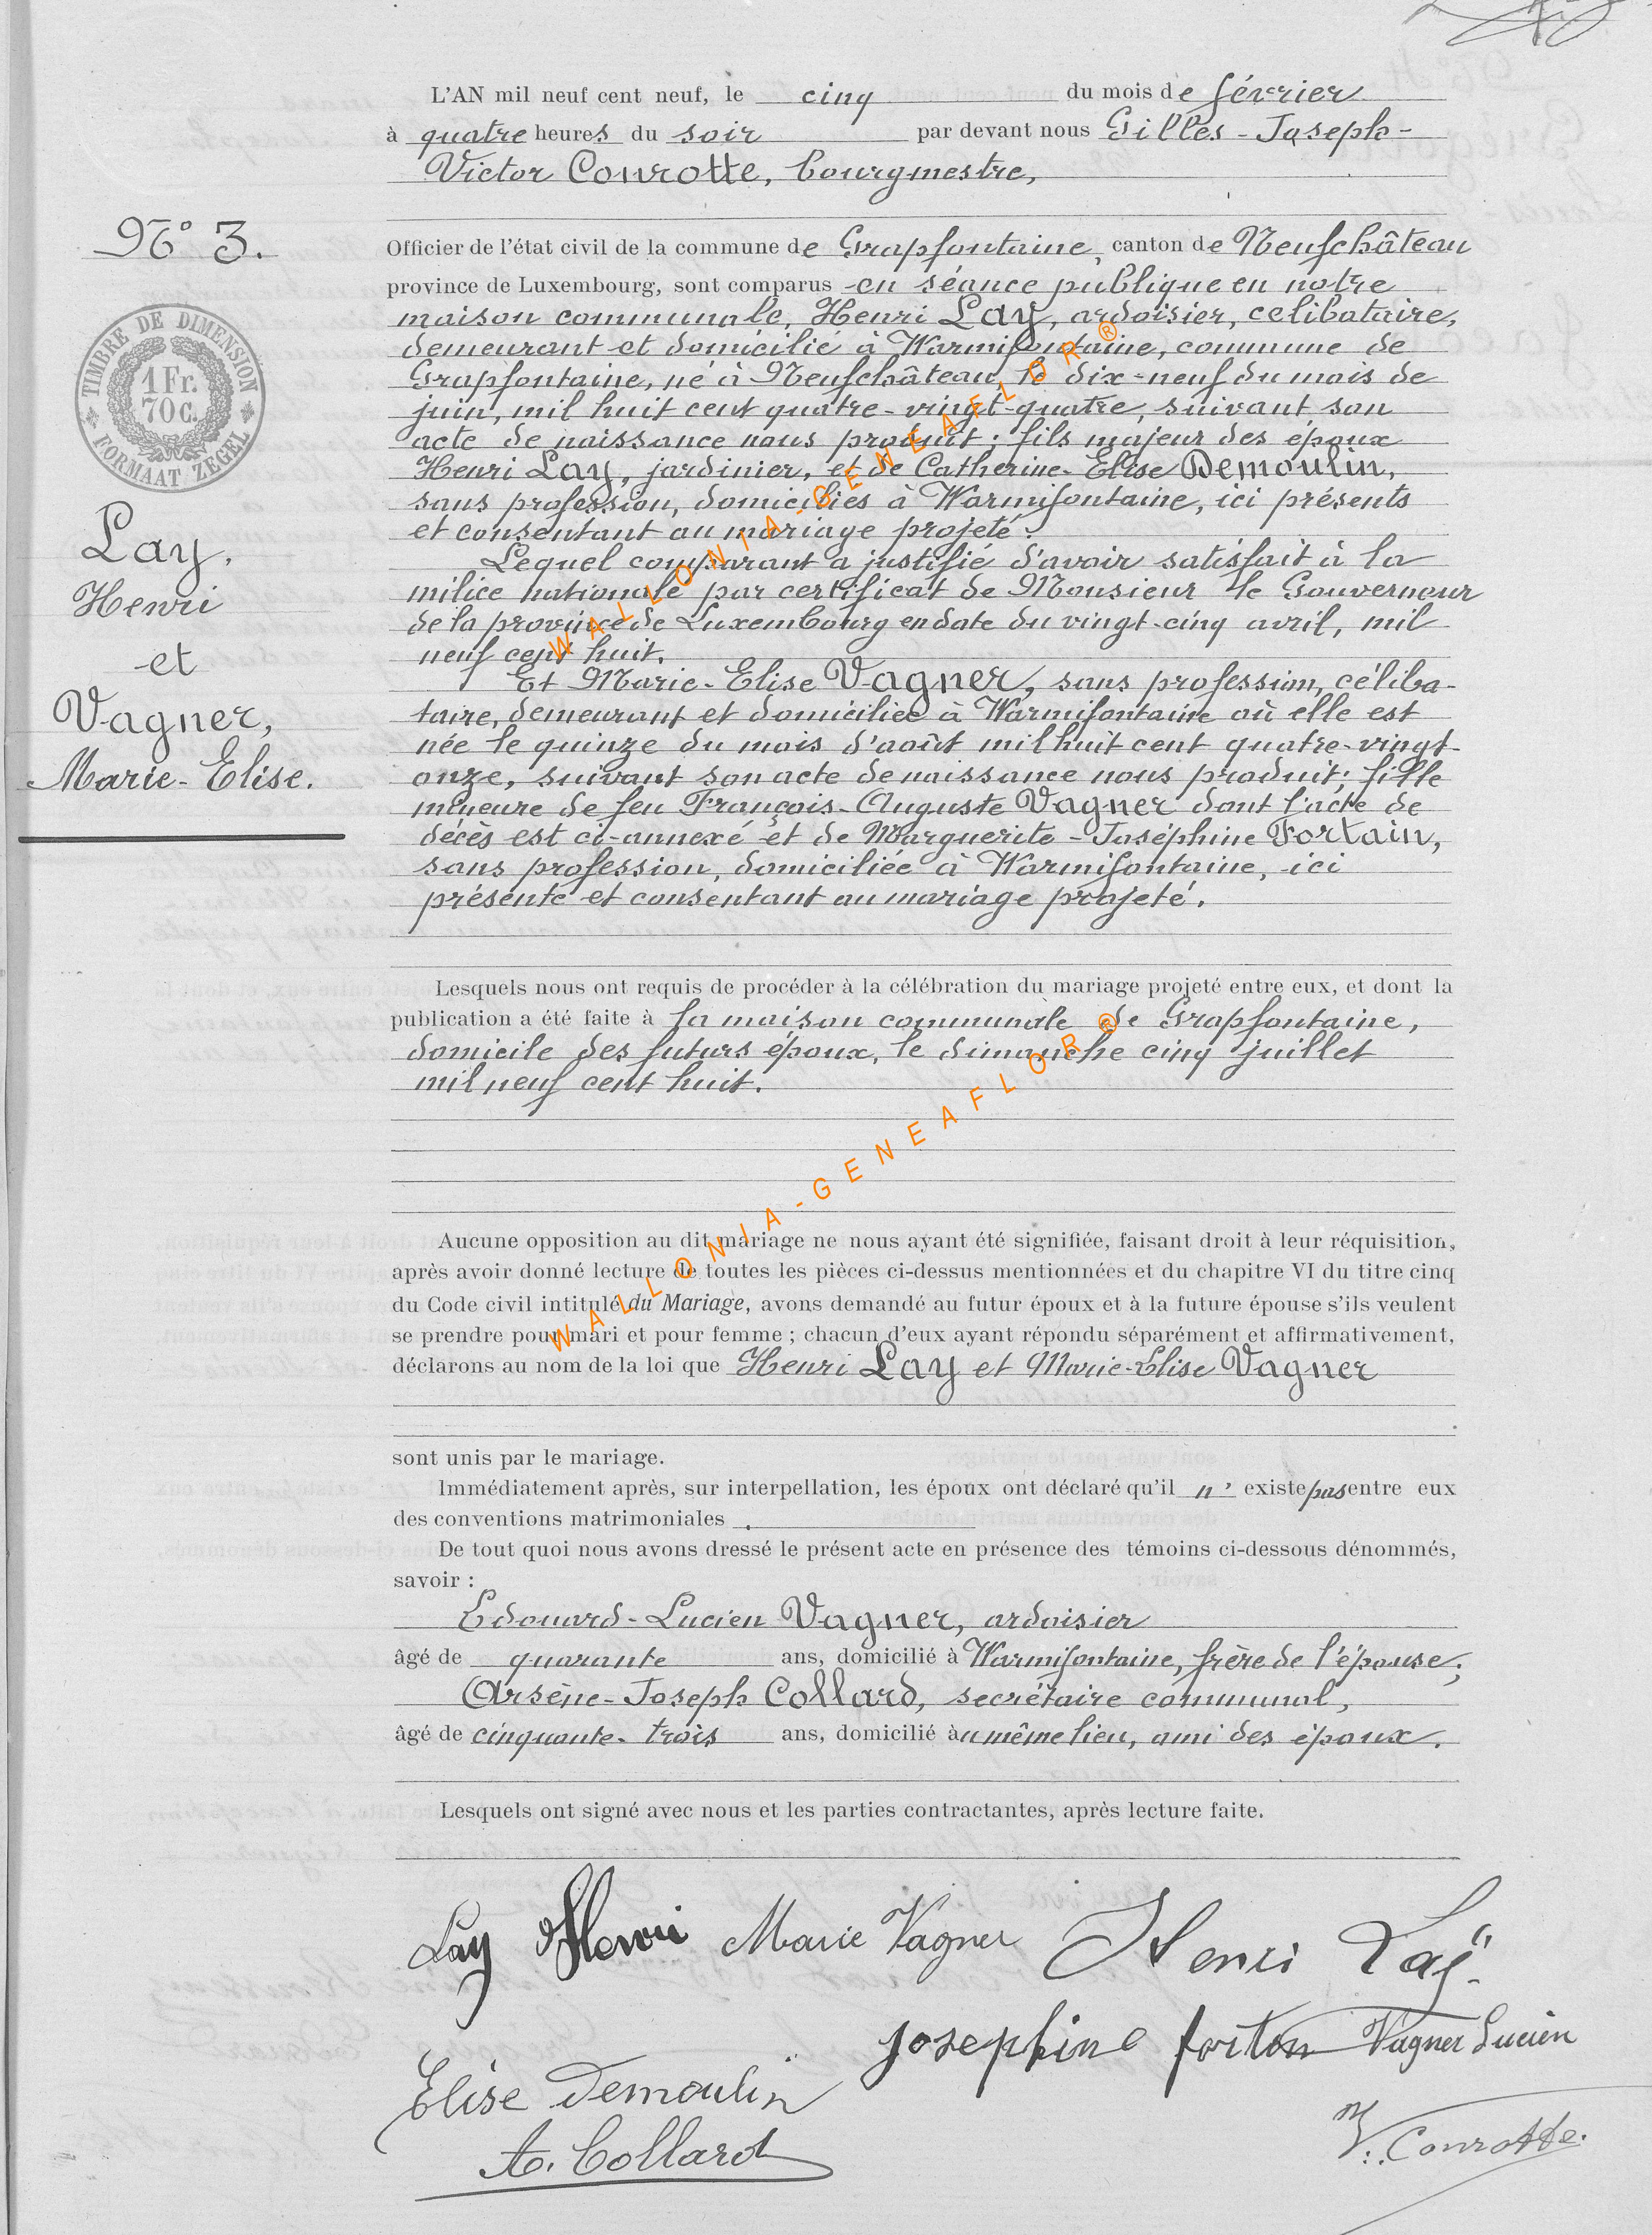 L'AN mil neuf cent neuf, le cinq du mois de février
à quatre heures du soir par devant nous Gilles-Joseph-
Victor Conrotte, bourgmestre,
N° 3.
Officier de l'état civil de la commune de Grapfontaine, canton de Neufchâteau
province de Luxembourg, sont comparus en séance publique en notre
maison communale, Henri Lay, ardoisier, celibataire,
demeurant et domicilié à Warmifontaine, commune de
Grapfontaine, né à Neufchâteau, le dix-neuf du mois de
juin, mil huit cent quatre-vingt-quatre, suivant son
acte de naissance nous produit; fils majeur des époux
Henri Lay, jardinier, et de Catherine-Elise Demoulin,
sans profession, domiciliés à Warmifontaine, ici présents
et consentant au mariage projeté.
Lequel comparant a justifié d'avoir satisfait à la
milice nationale par certificat de Monsieur le Gouverneur
de la province de Luxembourg en date du vingt-cinq avril, mil
neuf cent huit.
Et Marie-Elise Vagner, sans profession, céliba-
taire, demeurant et domiciliée à Warmifontaine où elle est
née le quinze du mois d'août mil huit cent quatre-vingt-
onze, suivant son acte de naissance nous produit; fille
mineure de feu François-Auguste Vagner dont l'acte de
décès est ci-annexé et de Marguerite-Joséphine Fortain,
sans profession, domiciliée à Warmifontaine, ici
présente et consentant au mariage projeté.
TIMBRE DE DIMENSION
1 Fr.
70 c.
FORMAAT ZEGEL
Lay,
Henri
et
Vagner,
Marie-Elise.
Lesquels nous ont requis de procéder à la célébration du mariage projeté entre eux, et dont la
publication a été faite à la maison communale de Grapfontaine,
domicile des futurs époux, le dimanche cinq juillet
mil neuf cent huit.
Aucune opposition au dit mariage ne nous ayant été signifiée, faisant droit à leur réquisition,
après avoir donné lecture de toutes les pièces ci-dessus mentionnées et du chapitre VI du titre cinq
du Code civil intitulé du Mariage, avons demandé au futur époux et à la future épouse s'ils veulent
se prendre pour mari et pour femme ; chacun d'eux ayant répondu séparément et affirmativement,
déclarons au nom de la loi que Henri Lay et Marie-Elise Vagner
sont unis par le mariage.
Immédiatement après, sur interpellation, les époux ont déclaré qu'il n' existe pas entre eux
des conventions matrimoniales .
De tout quoi nous avons dressé le présent acte en présence des témoins ci-dessous dénommés,
savoir :
Edouard-Lucien Vagner, ardoisier
âgé de quarante ans, domicilié à Warmifontaine, frère de l'épouse;
Arsène-Joseph Collard, secrétaire communal,
âgé de cinquante-trois ans, domicilié au même lieu, ami des époux.
Lesquels ont signé avec nous et les parties contractantes, après lecture faite.
Lay Henri Marie Vagner Henri Laÿ
Josephine forton Vagner Lucien
Elise Demoulin
A. Collard
V. Conrotte.
WALLONIA-GENEAFLOR ®
WALLONIA-GENEAFLOR ®